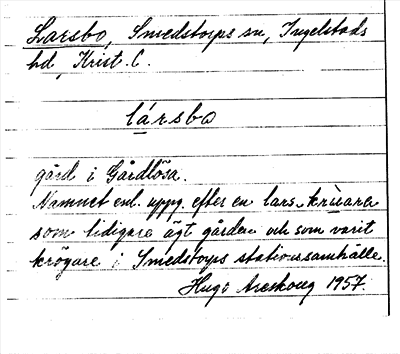 Larsbo, Smedstorps sn, Ingelstads
hd, Krist. C.
lársbo
gård i Gårdlösa.
Namnet enl. uppg. efter en lars-krùare
som tidigare ägt gården och som varit
krögare i Smedstorps stationssamhälle.
Hugo Areskoug 1957.